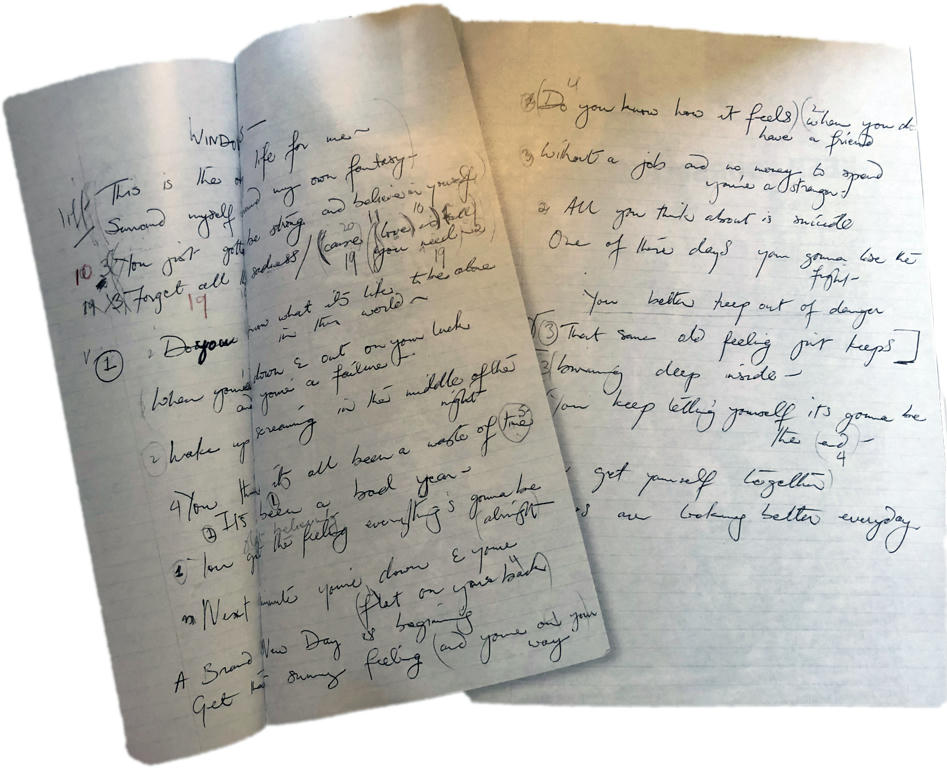 WINDOWS
This is the life for me
Surround myself around my own fantasy
You just gotta be strong and believe in yourself
10 3
20 11 10
Forget all the sadness / (cause (love) is all)
19 X3 19 you need
19 19
1 Do you know what it's like to be alone
in this world
(When you're down & out on your luck
and you're a failure
2 Wake up screaming in the middle of the
night
4 You think it's all been a waste of time 5
1 It's been a bad year
1
believing
1 You get the feeling everything's gonna be
(alright
Next minute you're down & you're
(flat on your back)
A Brand New Day is beginning
Get that sunny feeling (and you're on your
way
4
3 (Do you know how it feels) (when you do
2
have a friend
3 Without a job and no money to spend
you're a stranger
2 All you think about is suicide
One of these days you gonna lose the
fight
You better keep out of danger
3 That same old feeling just keeps]
3 burning deep inside
You keep telling yourself it's gonna be
the end
4
get yourself together)
are looking better everyday